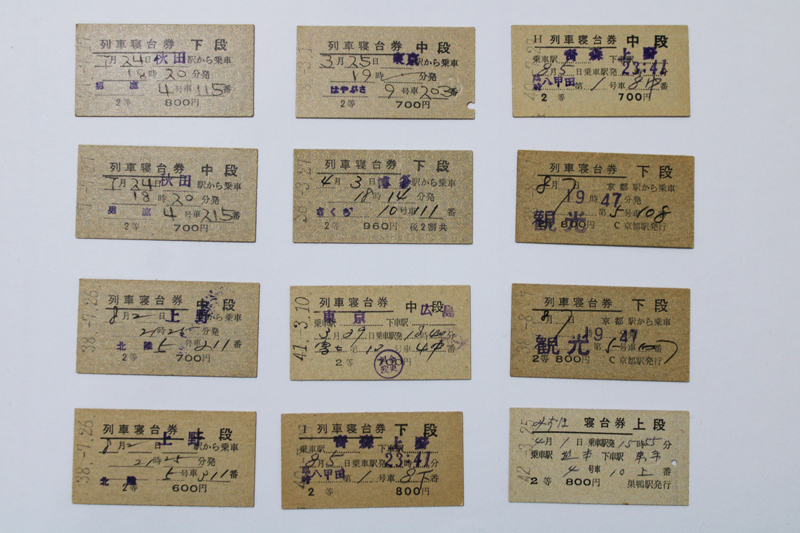 列車寝台券 下段
7月24日 秋田 駅から乗車
18時20分発
4号車115番
2等 800円
列車寝台券 中段
3月25日 東京 駅から乗車
19時 分発
はやぶさ 9号車203番
2等 700円
H 列車寝台券 中段
青森 上野
乗車駅 下車駅
8月5日乗車駅発23:47
八甲田 第1号車8中
2等 700円
列車寝台券 中段
7月24日 秋田 駅から乗車
18時20分発
4号車215番
2等 700円
列車寝台券 下段
4月3日 博多 駅から乗車
18時14分発
さくら 10号車111番
2等 960円 税2割共
列車寝台券 下段
8 7 京都駅から乗車
19時47分発
観光 第5号車108
800円 C京都駅発行
38.-7.26
列車寝台券 中段
8月2日 上野 駅から乗車
21時25分発
北陸 5号車211番
2等 700円
41.3.10
列車寝台券 中段
東京 広島
乗車駅 下車駅
3月29日乗車駅発18時40分
第12号車4中番
2等
列車寝台券 下段
8 7 京都駅から乗車
19 47
観光 第5号車
2等 800円 C京都駅発行
38.-7.26
列車寝台券 下段
8月2日 上野 駅から乗車
21時25分発
北陸 5号車311番
2等 600円
I 列車寝台券 下段
青森 上野
乗車駅 下車駅
8月5日乗車駅発23:47
八甲田 第1号車8下
2等 800円
寝台券 上段
4月1日乗車駅発15時55分
乗車駅 下車駅
4号車10上番
2等 800円 巣鴨駅発行